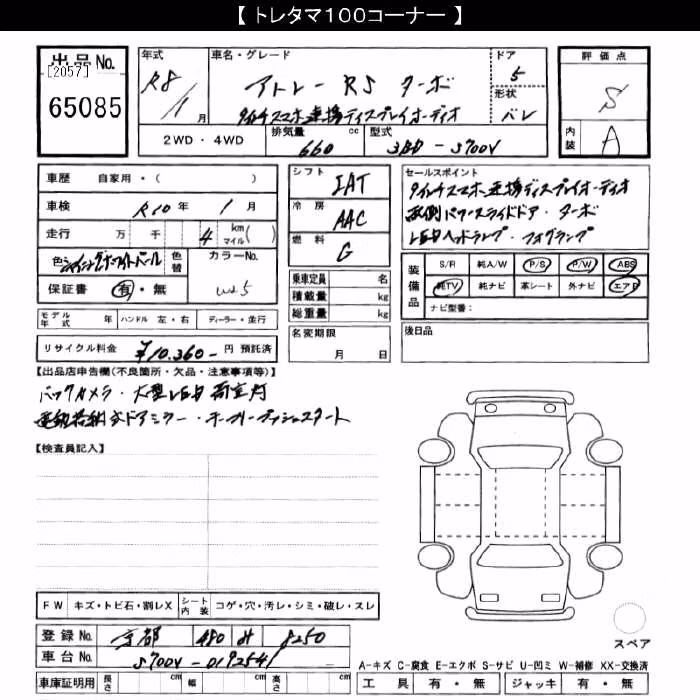 【 トレタマ100コーナー 】
出品No.
[2057]
65085
年式
R8/1月
車名・グレード
アトレー RS ターボ
9インチスマホ連携ディスプレイオーディオ
ドア
5
形状
バン
評価点
S
内装
A
2WD・4WD
排気量
660 cc
型式
3BD-S700V
車歴 自家用・( )
車検 R10年 1月
走行 万 千 4 km マイル( )
色 シャイニングホワイトパール
色替
カラーNo.
W25
保証書 有・無
シフト
IAT
冷房
AAC
燃料
G
乗車定員 名
積載量 kg
総重量 kg
名変期限
月 日
セールスポイント
9インチスマホ連携ディスプレイオーディオ
両側パワースライドドア・ターボ
LEDヘッドランプ・フォグランプ
装備品
S/R 純A/W P/S P/W ABS
純TV 純ナビ 革シート 外ナビ エアB
ナビ型番:
後日品
モデル年式 年 ハンドル 左・右 ディーラー・並行
リサイクル料金 ¥10,360- 円 預託済
【出品店申告欄(不良箇所・欠品・注意事項等)】
バックカメラ・大型LED荷室灯
電動格納式ドアミラー・キーフリープッシュスタート
【検査員記入】
FW キズ・トビ石・割レX シート内装 コゲ・穴・汚レ・シミ・破レ・スレ
登録No. 京都 480 8250
車台No. S700V-0192541
車庫証明用 長さ cm 幅 cm 高さ cm
スペア
A-キズ C-腐食 E-エクボ S-サビ U-凹ミ W-補修 XX-交換済
工具 有・無 ジャッキ 有・無